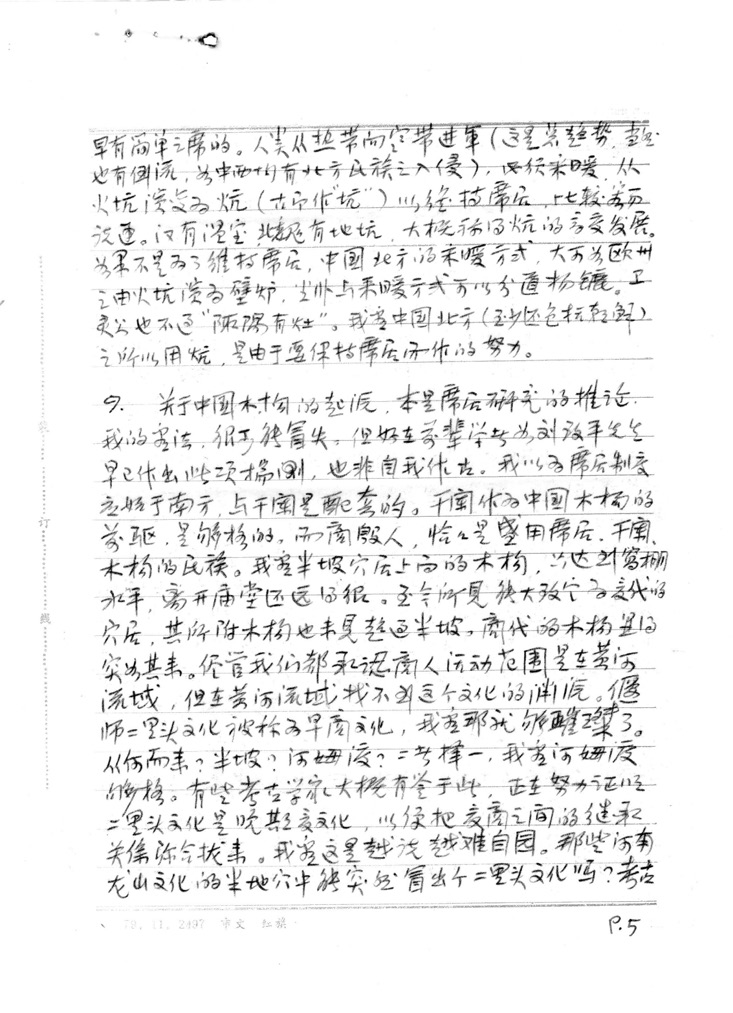 早有简单之席的。人类从热带向空带进军（这是总趋势，当然
也有倒流，如中西均有北方民族之入侵），必须采暖，从
火坑演变为炕（古亦作“坑”）以维持席居，比较容易
说通。汉有温室，北魏有地坑，大概都为炕的高度发展。
如果不是为了维持席居，中国北方的采暖方式，大可如欧州
之由火坑演为壁炉，坐卧与采暖方式可以分道扬镳。卫
灵公也不过“陬隅有灶”。我看中国北方（至少还包括朝鲜）
之所以用炕，是由于要保持席居而作的努力。
9. 关于中国木构的起源，本是席居研究的推论，
我的看法，很可能冒失。但好在前辈学者如刘致平先生
早已作出此项揣测，也非自我作古。我以为席居制度
应始于南方，与干阑是配套的。干阑作为中国木构的
前驱，是够格的。而商殷人，恰恰是盛用席居、干阑、
木构的民族。我看半坡穴居上面的木构，只达到窝棚
水平，离开庙堂还远得很。至今所见能大致定为夏代的
穴居，其所附木构也未见超过半坡。商代的木构显得
突如其来。尽管我们都承认商人活动范围是在黄河
流域，但在黄河流域找不到这个文化的渊源。偃
师二里头文化被称为早商文化，我看那就够璀璨了。
从何而来？半坡？河姆渡？二者择一，我看河姆渡
够格。有些考古学家大概有鉴于此，正在努力证明
二里头文化是晚期夏文化，以便把夏商之间的继承
关系弥合拢来。我看这是越说越难自园。那些河南
龙山文化的半地穴中能突然冒出个二里头文化吗？考古
70.11.2497 市文 红旗
P.5
装
订
线